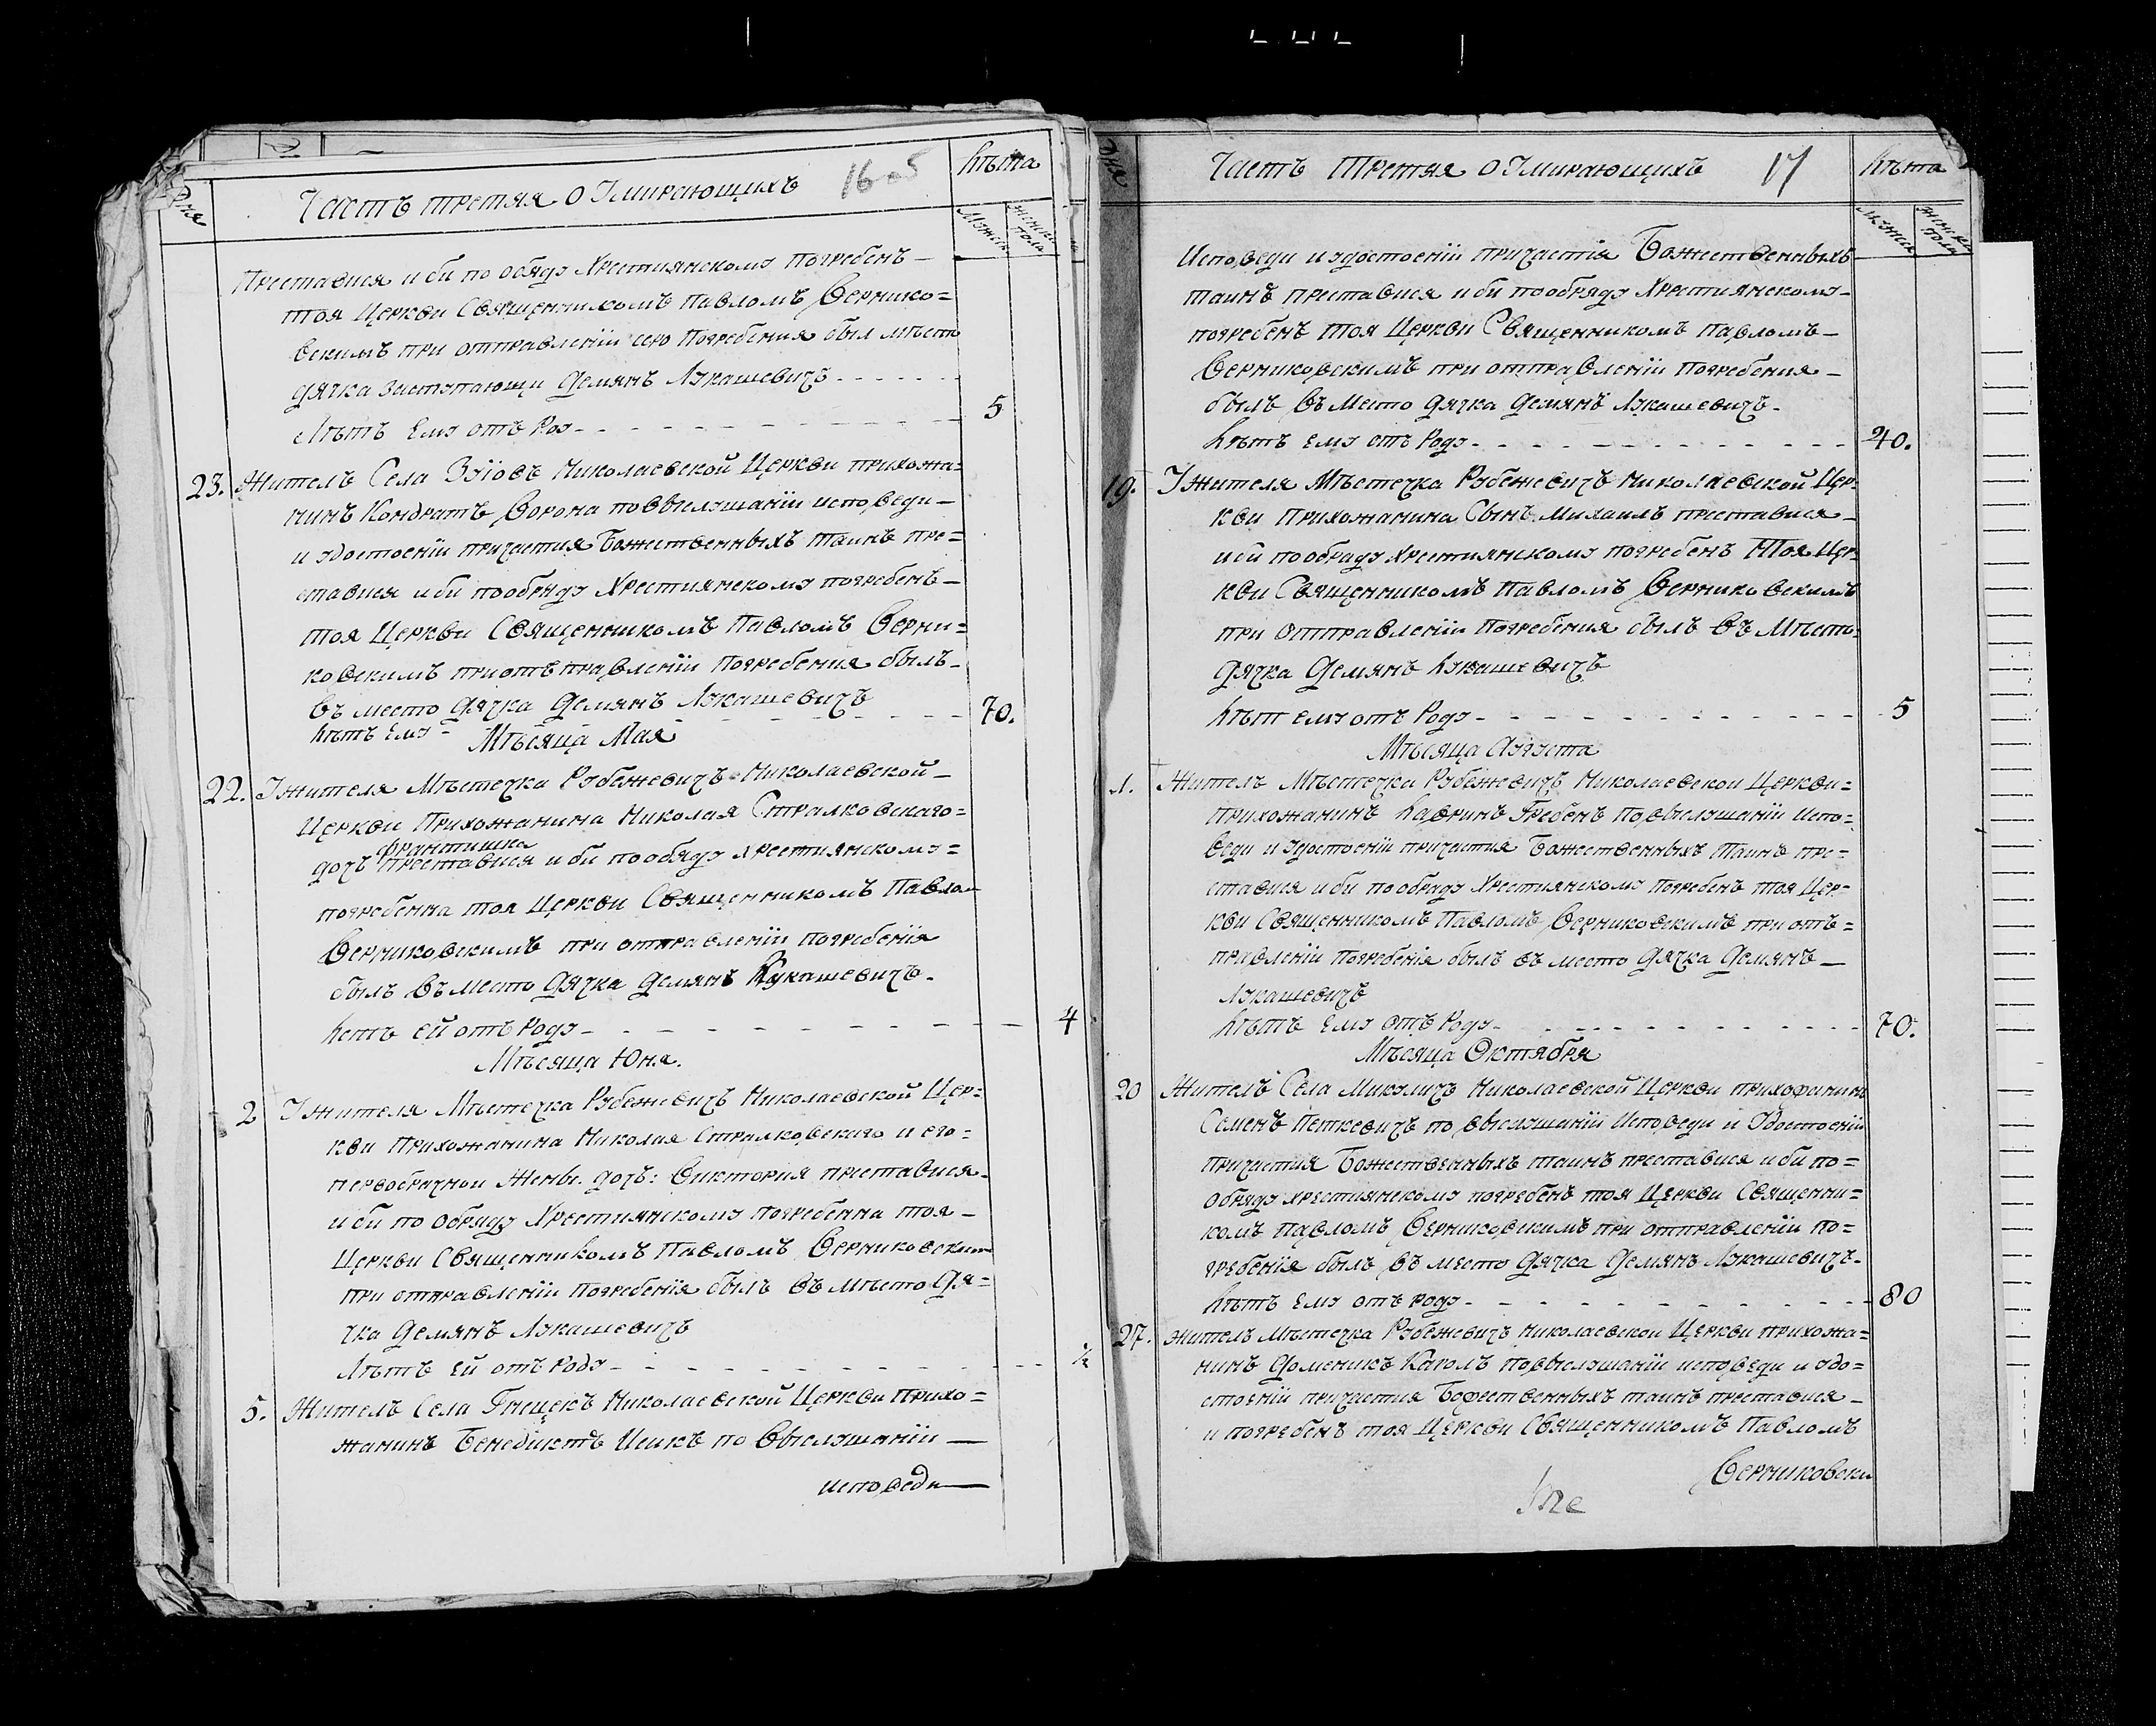 Дня
Часть третяя о Умирающихъ
16-05
Лѣта
Мужеск
женск пола
Преставися и би по обяду Хрестиянскому погребенъ —
тоя Церкви Священникомъ Павломъ Вернико=
вскимъ при отправленіи сего погребения был мѣсто
дячка заступающи Демянъ Лукашевичъ
Лѣтъ Ему отъ Роу
5
23. Жителъ Села Николаевской Церкви прихожа=
нинъ Кондратъ Ворона по выслушаніи исповеди —
и удостоеніи причастия Божественныхъ таинъ пре=
ставися и би по обряду Хрестиянскому погребенъ —
тоя Церкви Священникомъ Павломъ Верни=
ковскимъ при отъправленіи погребения былъ —
въ место дячка Демянъ Лукашевичъ
Лѣтъ Ему
70.
Мѣсяца Мая
22. У жителя Мѣстечка Рубежевичъ Николаевской —
Церкви Прихожанина Николая Стралковскаго=
Франтишка
дочъ преставися и би по обяду хрестиянскому=
погребенна тоя Церкви Священникомъ Павлом
Верниковскимъ при отправленіи погребенія
былъ въ место дячка Демянъ Лукашевичъ.
Летъ ей отъ Роду
4
Мѣсяца Юня.
2 У жителя Мѣстечка Рубежевичъ Николаевской Цер=
кви прихожанина Николая Стралковскаго и его=
первобрачной Жены. дочъ: Виктория преставися —
и би по обряду Хрестиянскому погребенна тоя —
Церкви Священникомъ Павломъ Верниковским
при отправленіи погребенія былъ въ мѣсто дя=
чка Демянъ Лукашевичъ
Лѣтъ ей отъ Роду
½
5. Жителъ Села Николаевской Церкви прихо=
жанинъ Бенедіктъ по выслушаніи —
исповеди —
Дня
Часть Третяя о Умирающихъ
17
Лѣта
Мужеск
женск пола
Исповеди и удостоеніи причастія Божественныхъ
таинъ преставися и би по обряду Хрестиянскому —
погребенъ тоя Церкви Священникомъ Павломъ —
Верниковскимъ при отправленіи погребения —
былъ въ Место дячка Демянъ Лукашевичъ.
Лѣтъ ему отъ Роду
40.
19. У Жителя Мѣстечка Рубежевичъ Николаевской Цер=
кви прихожанина Сынъ Михаилъ преставися —
и би по обряду хрестиянскому погребенъ Тоя Цер=
кви Священникомъ Павломъ Верниковскимъ
при отправленіи погребения былъ въ Мѣсто
дячка Демянъ Лукашевичъ
Лѣт ему отъ Роду
5
Мѣсяца Августа
1. Жителъ Мѣстечка Рубежевичъ Николаевской Церкви=
прихожанинъ Лавринъ Гребень по выслушаніи испо=
веди и удостоеніи причастия Божественныхъ таинъ пре=
ставися и би по обряду Хрестиянскому погребенъ тоя Цер=
кви Священникомъ Павломъ Верниковскимъ при отъ=
правленіи погребенія былъ въ место дячка Демянъ —
Лукашевичъ
Лѣтъ ему отъ Роду
70.
Мѣсяца Октября
20 Жителъ Села Микуличъ Николаевской Церкви прихожанинъ
Семенъ Петкевичъ по выслушаніи исповеди и Удостоеніи
причастия Божественныхъ таинъ преставися и би по=
обряду хрестиянскому погребенъ тоя Церкви Священни=
комъ Павломъ Верниковскимъ при отправленіи по=
гребенія былъ въ место дячка Демянъ Лукашевичъ.
Лѣтъ ему отъ роду
80
27. житель Мѣстечка Рубежевичъ Николаевской Церкви прихожа=
нинъ Доменикъ по выслушаніи исповеди и удо=
стоеніи причастия Божественныхъ таинъ преставися —
и погребенъ тоя Церкви Священникомъ Павломъ
Верниковски